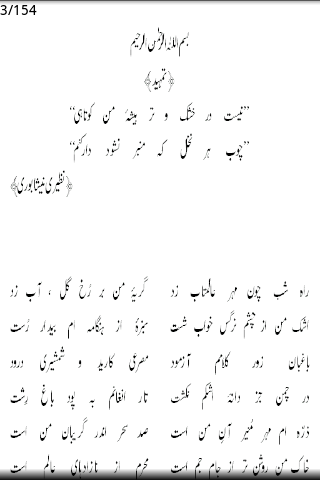 3/154
بسم اللہ الرحمن الرحیم
﴿تمہید﴾
”نیست در خشک و تر بیشۂ من کوتاہی“
”چوب ہر نخل کہ منبر نشود دار کنم“
﴿نظیری نیشابوری﴾
راہ شب چون مہر عالمتاب زد گریۂ من بر رُخ گل ، آب زد
اشک من از چشم نرگس خواب شست سبزہ از ہنگامہ ام بیدار رُست
باغبان زور کلامم آزمود مصرعی کارید و شمشیری درود
در چمن جز دانۂ اشکم نکشت تار افغانم بہ پود باغ رِشت
ذرّہ ام مہر مُنیر آنِ من است صد سحر اندر گریبان من است
خاک من روشن تر از جام جم است محرم از نازادہای عالم است